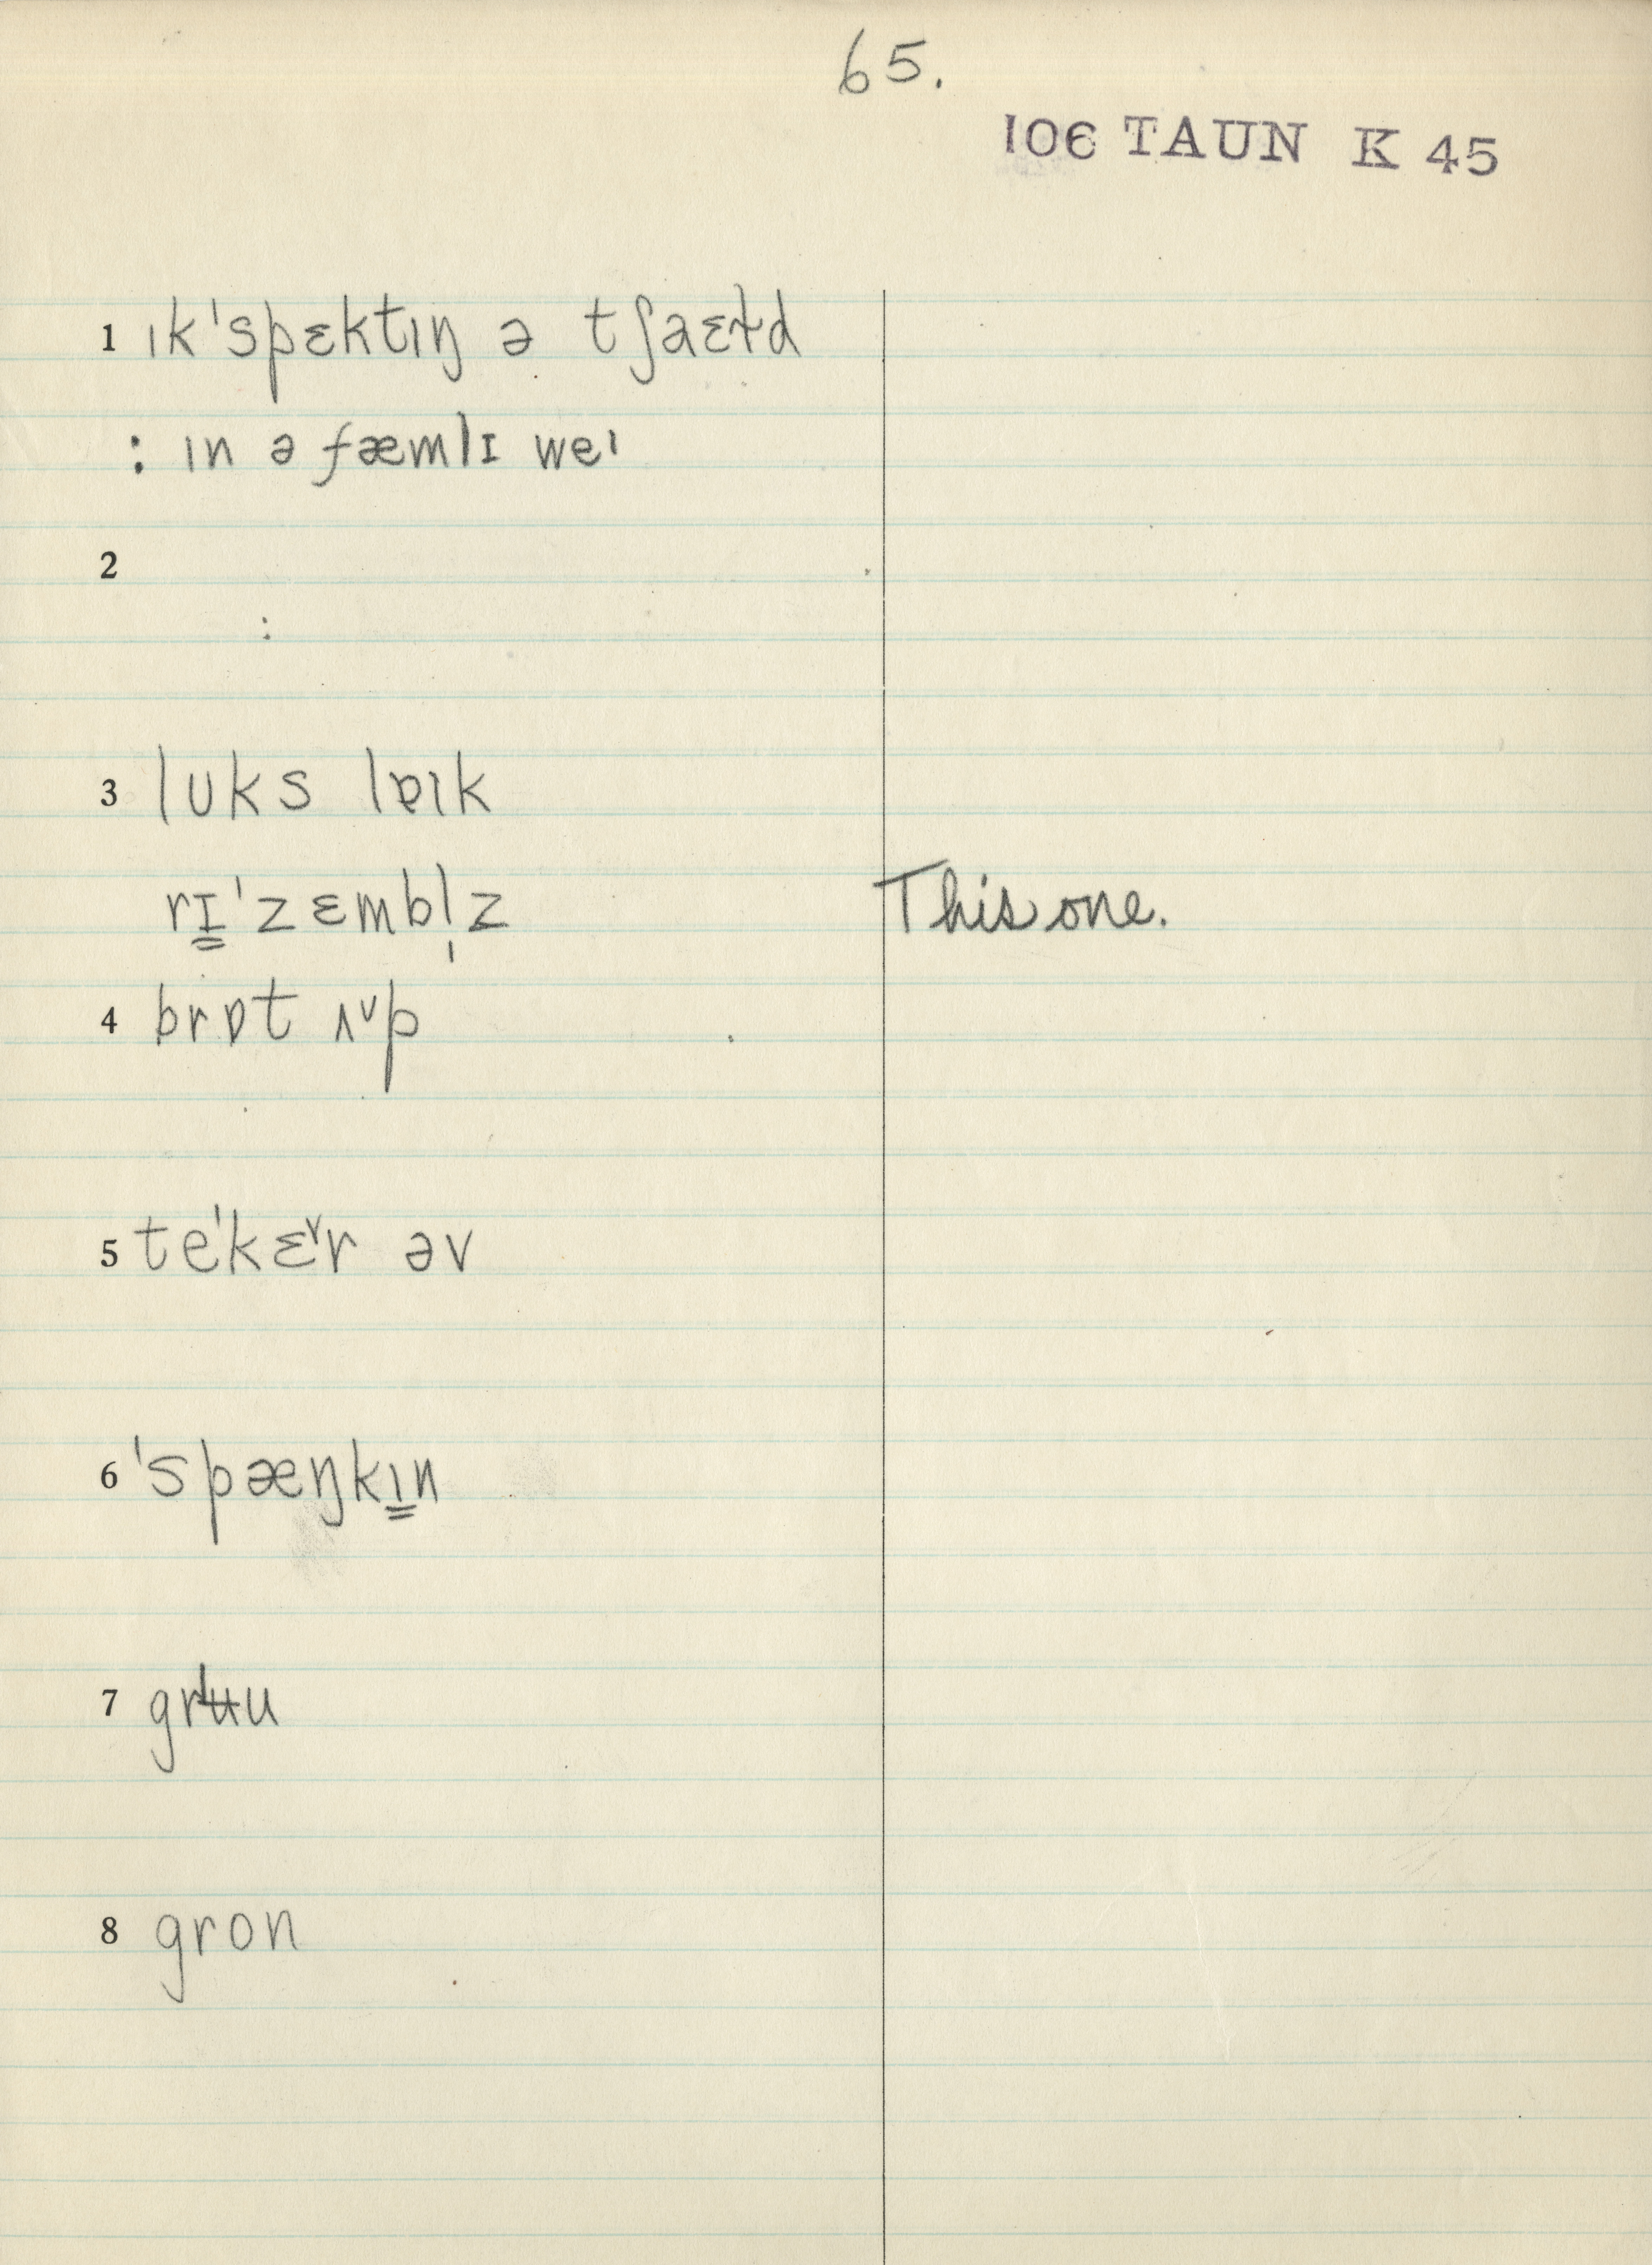 65.
106 TAUN K 45
1 ɪk'spɛktɪŋ ə tʃaɛɫd
: ɪn ə fæmlɪ weɪ
2
:
3 lʊks lɐɪk
rɪ̳'zɛmbl̩z This one.
4 brɒt ʌᵛp
5 te'kɛᵛr əv
6 'spæŋkɪ̳n
7 grʉu
8 gron